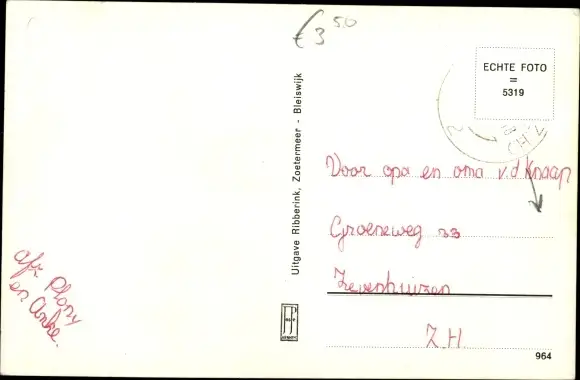 € 3 50
ECHTE FOTO
=
5319
Uitgave Ribberink, Zoetermeer - Bleiswijk
Voor opa en oma v.d Knaap
Groeneweg 33
Zevenhuizen
Z.H
afz
en Anke.
964